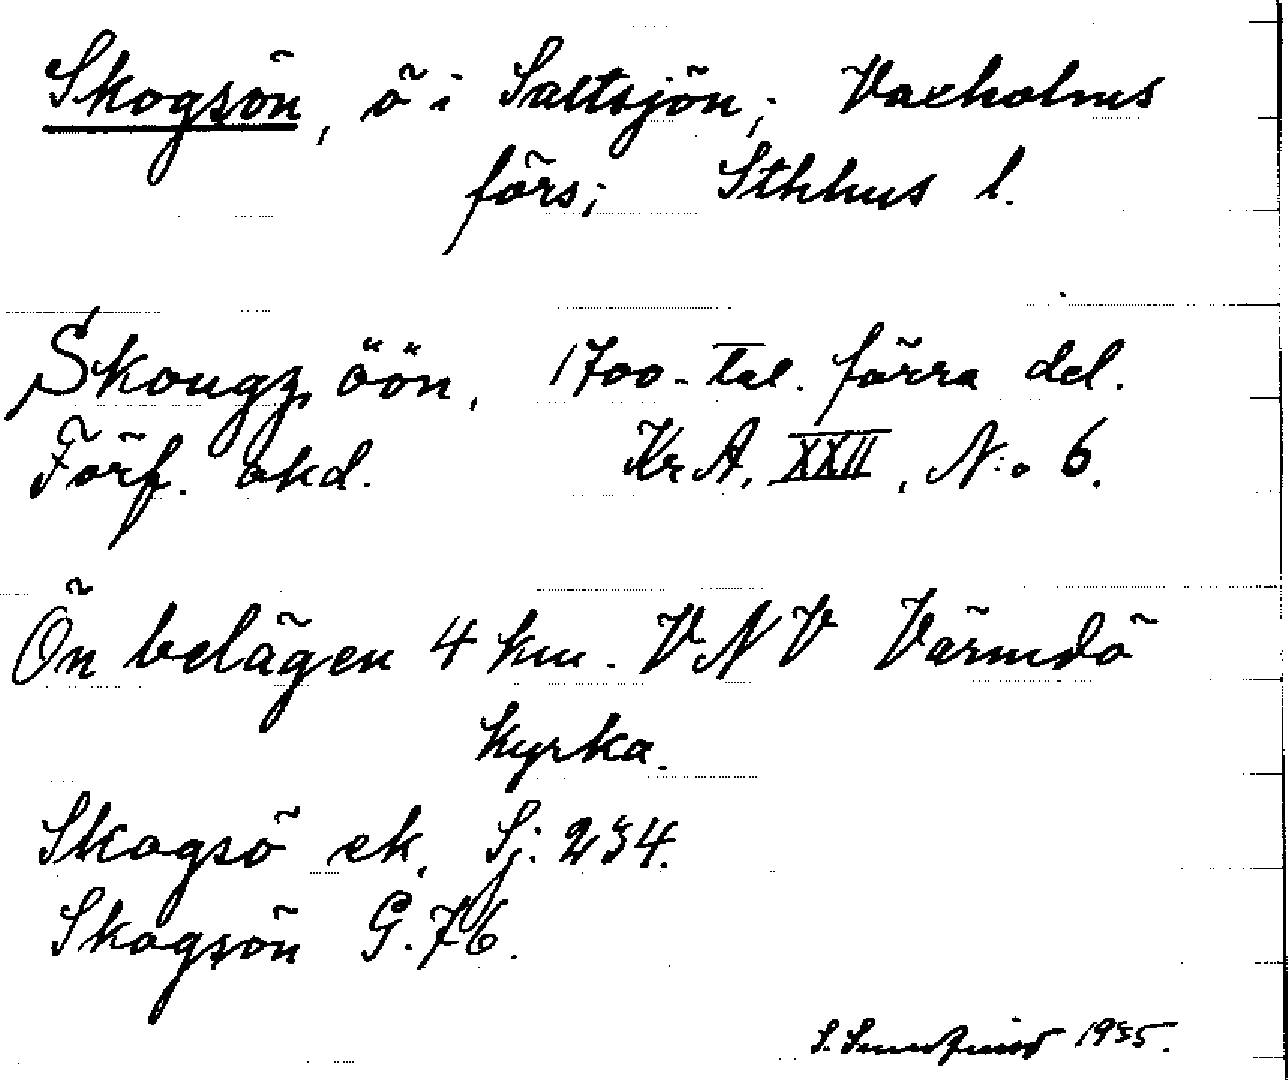 Skogsön, ö i Saltsjön; Vaxholms
förs; Sthlms l.
Skougz öön, 1700-tal. förra del.
Förf. okd. Kr A. XXII, N:o 6.
Ön belägen 4 km. VNV Värmdö
kyrka.
Skogsö ek. Sj. 234.
Skogsön G. 76.
S. 1935.